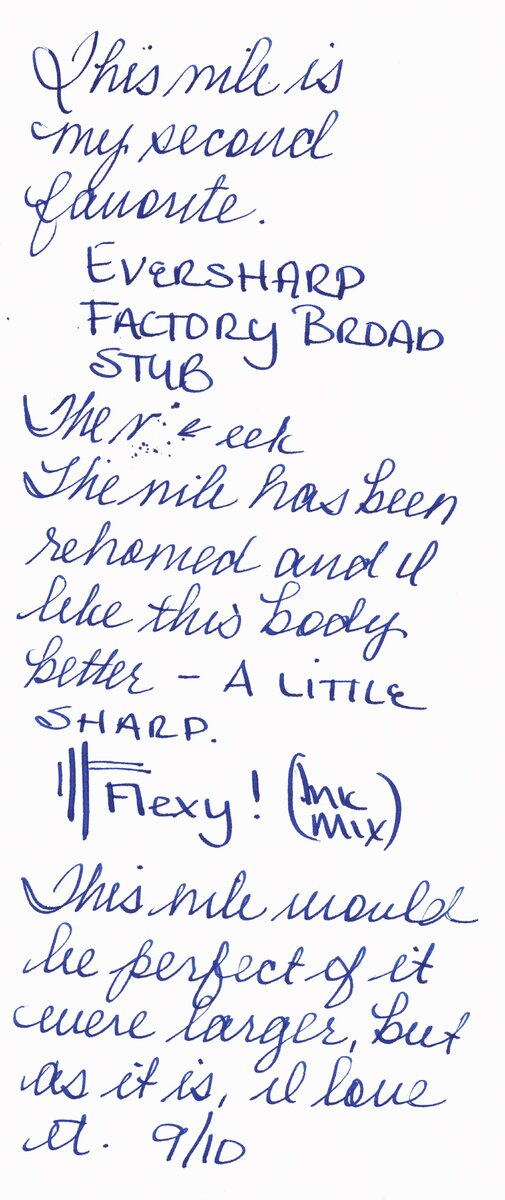 This nib is
my second
favorite.
EVERSHARP
FACTORY BROAD
STUB
The n ← eek
The nib has been
rehomed and I
like this body
better – A LITTLE
SHARP.
Flexy! (Ink
Mix)
This nib would
be perfect if it
were larger, but
as it is, I love
it. 9/10